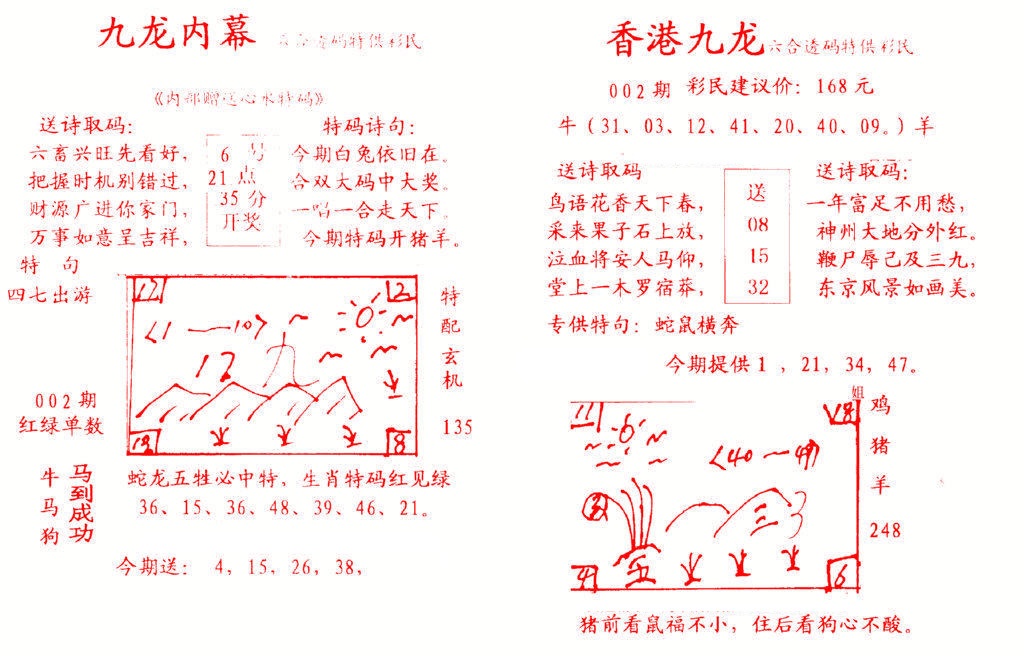 九龙内幕 六合透码特供彩民
《内部赠送心水特码》
送诗取码:
六畜兴旺先看好,
把握时机别错过,
财源广进你家门,
万事如意呈吉祥,
6 号
21 点
35 分
开奖
特码诗句:
今期白兔依旧在。
合双大码中大奖。
一唱一合走天下。
今期特码开猪羊。
特 句
四七出游
002期
红绿单数
12
2
<1 — 10>
九
12
8
特配玄机
135
牛马狗
马到成功
蛇龙五牲必中特, 生肖特码红见绿
36、15、36、48、39、46、21。
今期送: 4, 15, 26, 38,
香港九龙 六合透码特供彩民
002期 彩民建议价: 168元
牛 (31、03、12、41、20、40、09。) 羊
送诗取码
鸟语花香天下春,
采来果子石上放,
泣血将安人马仰,
堂上一木罗宿莽,
送
08
15
32
送诗取码:
一年富足不用愁,
神州大地分外红。
鞭尸辱己及三九,
东京风景如画美。
专供特句: 蛇鼠横奔
今期提供1 , 21, 34, 47。
姐
11
6
<40 — 49>
三
4
6
鸡
猪
羊
248
猪前看鼠福不小, 住后看狗心不酸。